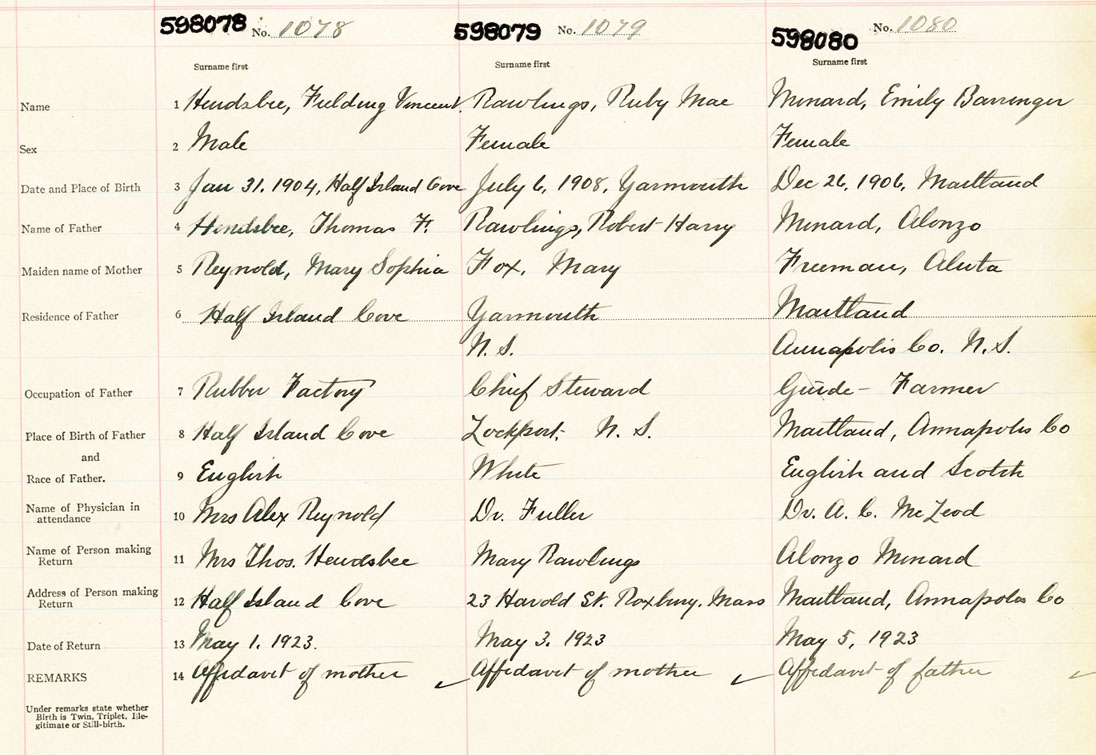 598078 No. 1078 598079 No. 1079 598080 No. 1080
Surname first Surname first Surname first
Name 1 Hendsbee, Fielding Vincent Rawlings, Ruby Mae Minard, Emily Barringer
Sex 2 Male Female Female
Date and Place of Birth 3 Jan 31. 1904, Half Island Cove July 6, 1908, Yarmouth Dec 26, 1906, Maitland
Name of Father 4 Hendsbee, Thomas F. Rawlings, Robert Harry Minard, Alonzo
Maiden name of Mother 5 Reynold, Mary Sophia Fox, Mary Freeman,
Residence of Father 6 Half Island Cove Yarmouth Maitland
N. S. Annapolis Co. N. S.
Occupation of Father 7 Rubber Factory Chief Steward Guide - Farmer
Place of Birth of Father 8 Half Island Cove Lockport. N. S. Maitland, Annapolis Co
and
Race of Father. 9 English White English and Scotch
Name of Physician in
attendance 10 Mrs Alex Reynold Dr. Fuller Dr. A. C. McLeod
Name of Person making
Return 11 Mrs Thos. Hendsbee Mary Rawlings Alonzo Minard
Address of Person making
Return 12 Half Island Cove 23 Harold St. Roxbury. Mass Maitland, Annapolis Co
Date of Return 13 May 1. 1923. May 3. 1923 May 5, 1923
REMARKS 14 Affidavit of mother Affidavit of mother Affidavit of father
Under remarks state whether
Birth is Twin, Triplet, Ille-
gitimate or Still-birth.